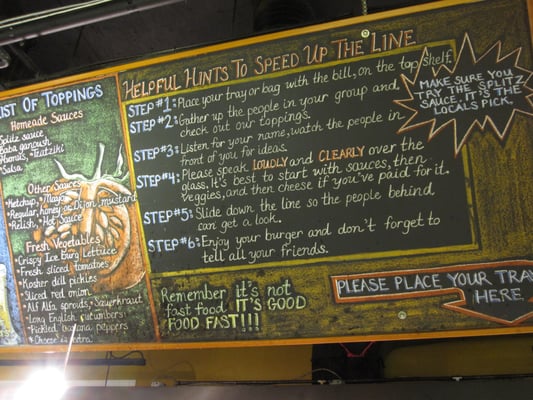 LIST OF TOPPINGS
Homeade Sauces
Splitz sauce
Baba ganoush
Hbanus, Tzatziki
Salsa
Other Sauces
Ketchup, Mayo
Regular, honey or Dijon mustard
Relish, Hot Sauce
Fresh Vegetables
Crispy Ice Burg Lettuce
Fresh sliced tomatoes
Kosher dill pickles
Sliced red onion
Alf Alfa sprouts, Sauerkraut
Long English cucumbers
Pickled banana peppers
HELPFUL HINTS TO SPEED UP THE LINE
STEP #1: Place your tray or bag with the bill, on the top shelf.
STEP #2: Gather up the people in your group and
check out our toppings.
STEP #3: Listen for your name, watch the people in
front of you for ideas.
STEP #4: Please speak LOUDLY and CLEARLY over the
glass. It's best to start with sauces, then
veggies, and then cheese if you've paid for it.
STEP #5: Slide down the line so the people behind
can get a look.
STEP #6: Enjoy your burger and don't forget to
tell all your friends.
Remember it's not
fast food, IT'S GOOD
FOOD FAST!!!
MAKE SURE YOU
TRY THE SPLITZ
SAUCE. IT'S THE
LOCALS PICK.
PLEASE PLACE YOUR TRAY
HERE.